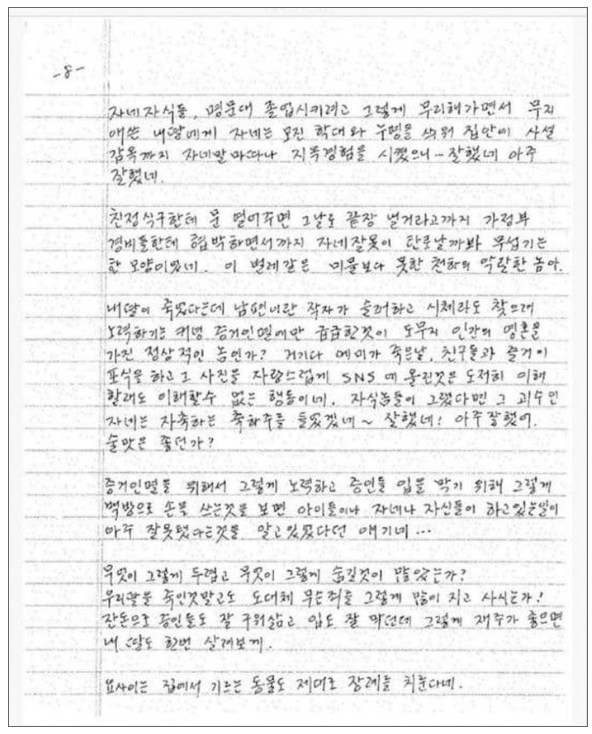 -8-
자네자식들, 명문대 졸업시키려고 그렇게 무리해가면서 무지
애쓴 내딸에게 자네는 모진 학대와 누명을 씌워 집안에 사설
감옥까지 자네말마따나 지옥경험을 시켰으니… 잘했네 아주
잘했네.
친정식구한테 문 열어주면 그날로 끝장 날거라고까지 가정부
경비들한테 협박하면서까지 자네잘못이 탄로날까봐 무섭기는
한 모양이였네. 이 벌레같은 미물보다 못한 천하의 악랄한 놈아.
내딸이 죽었다는데 남편이란 작자가 슬퍼하고 시체라도 찾으려
노력하기는 커녕 증거인멸에만 급급한것이 도무지 인간의 영혼을
가진 정상적인 놈인가? 거기다 에미가 죽은날, 친구들과 즐거이
포식을 하고 그 사진을 자랑스럽게 SNS 에 올린것은 도저히 이해
할래도 이해할수 없는 행동이네. 자식놈들이 그랬다면 그 괴수인
자네는 자축하는 축하주를 들었겠네~ 잘했네! 아주잘했어.
술맛은 좋던가?
증거인멸을 위해서 그렇게 노력하고 증인들 입을 막기 위해 그렇게
백방으로 손을 쓰는것을 보면 아이들이나 자네나 자신들이 하고있는일이
아주 잘못됐다는것을 알고있었다던 얘기네…
무엇이 그렇게 두렵고 무엇이 그렇게 숨길것이 많았는가?
우리딸을 죽인것말고도 도대체 무슨죄를 그렇게 많이 지고 사시는가!
잔돈으로 증인들도 잘 구워삶고 입도 잘 막던데 그렇게 재주가 좋으면
내 딸도 한번 살려보게.
요사이는 집에서 기르는 동물도 제대로 장례를 치룬다네.